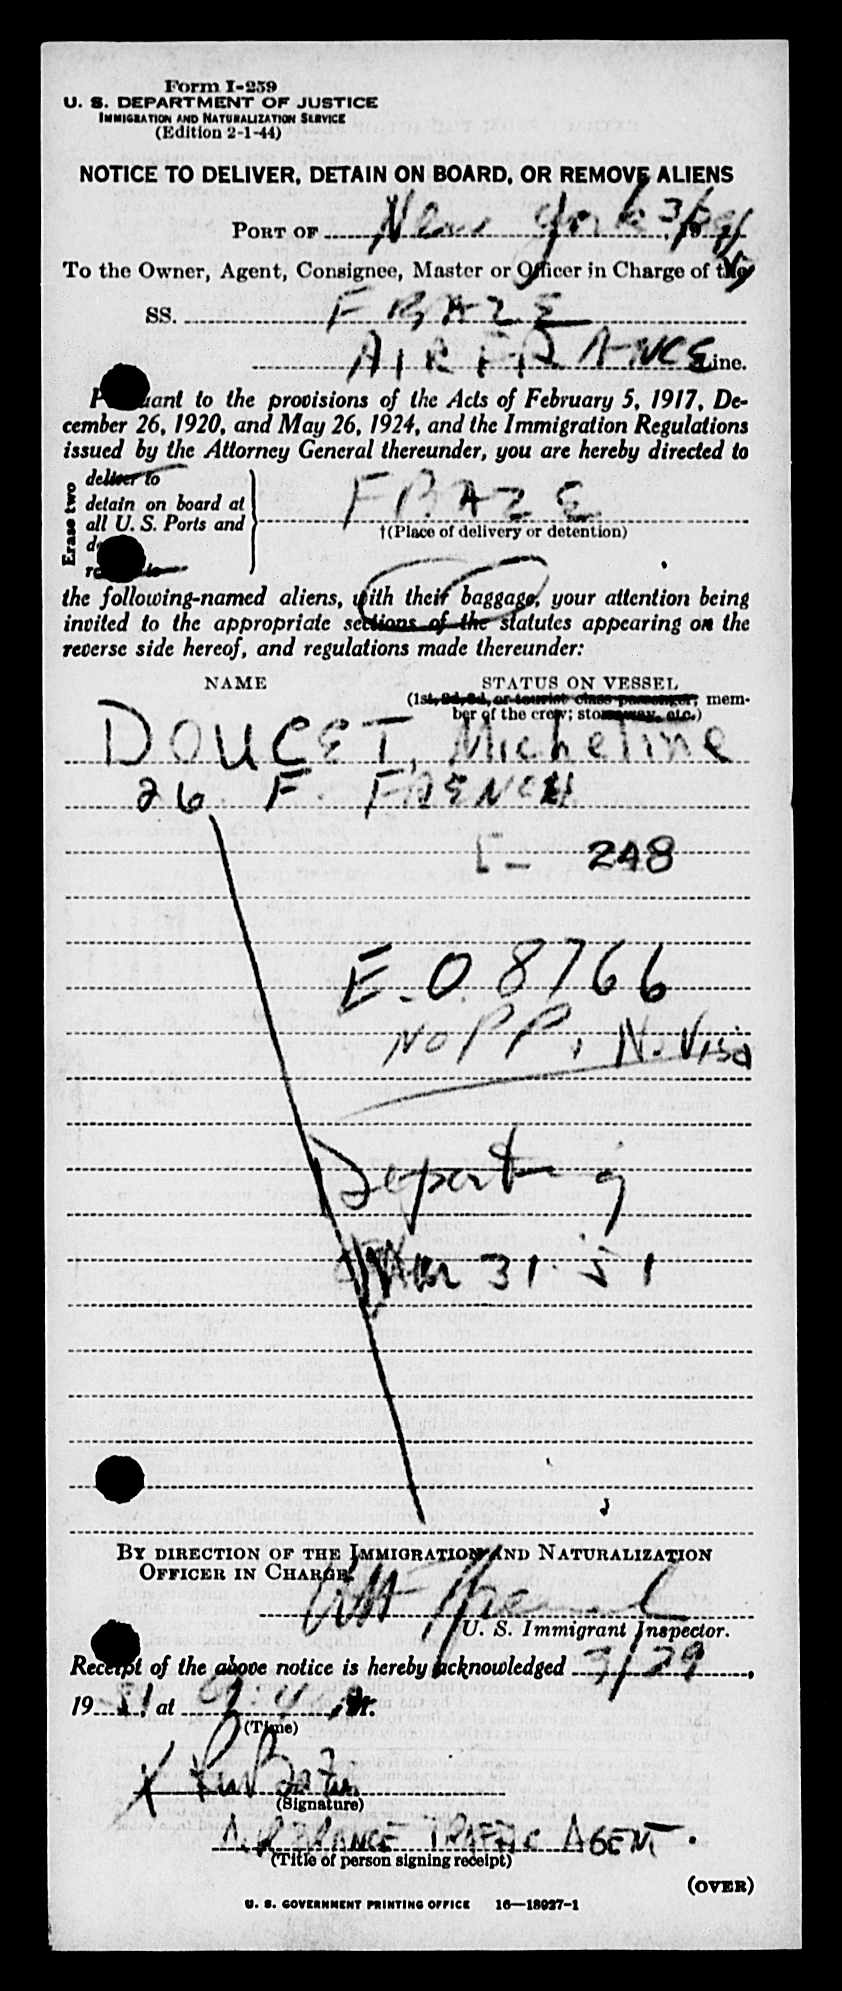 Form I-259
U. S. DEPARTMENT OF JUSTICE
IMMIGRATION AND NATURALIZATION SERVICE
(Edition 2-1-44)
NOTICE TO DELIVER, DETAIN ON BOARD, OR REMOVE ALIENS
PORT OF New York 3/29/51
To the Owner, Agent, Consignee, Master or Officer in Charge of the
SS. FBAZE
AIR FRANCE Line.
to the provisions of the Acts of February 5, 1917, De-
cember 26, 1920, and May 26, 1924, and the Immigration Regulations
issued by the Attorney General thereunder, you are hereby directed to
Erase two
deliver to
detain on board at
all U. S. Ports and
FBAZE
†(Place of delivery or detention)
the following-named aliens, with their baggage, your attention being
invited to the appropriate sections of the statutes appearing on the
reverse side hereof, and regulations made thereunder:
NAME STATUS ON VESSEL
(1st, 2d, 3d, or tourist class passenger; mem-
ber of the crew; stowaway, etc.)
DOUCET, Micheline
26 F. FRENCH
I- 248
E.O. 8766
No PP, No Visa
Departing
Mar 31 51
BY DIRECTION OF THE IMMIGRATION AND NATURALIZATION
OFFICER IN CHARGE.
U. S. Immigrant Inspector.
Receipt of the above notice is hereby acknowledged 3/29,
1951, at M.
(Time)
X
(Signature)
AIR FRANCE TRAFFIC AGENT.
(Title of person signing receipt)
(OVER)
U. S. GOVERNMENT PRINTING OFFICE 16—18027-1